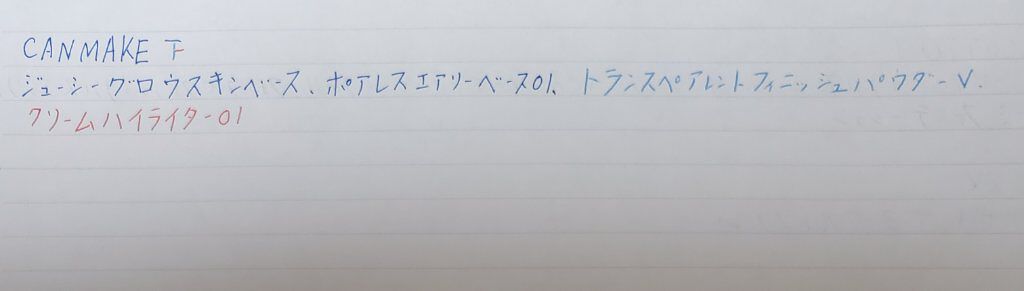 CANMAKE 下
ジューシーグロウスキンベース、ポアレスエアリーベース01、トランスペアレントフィニッシュパウダーV.
クリームハイライター01